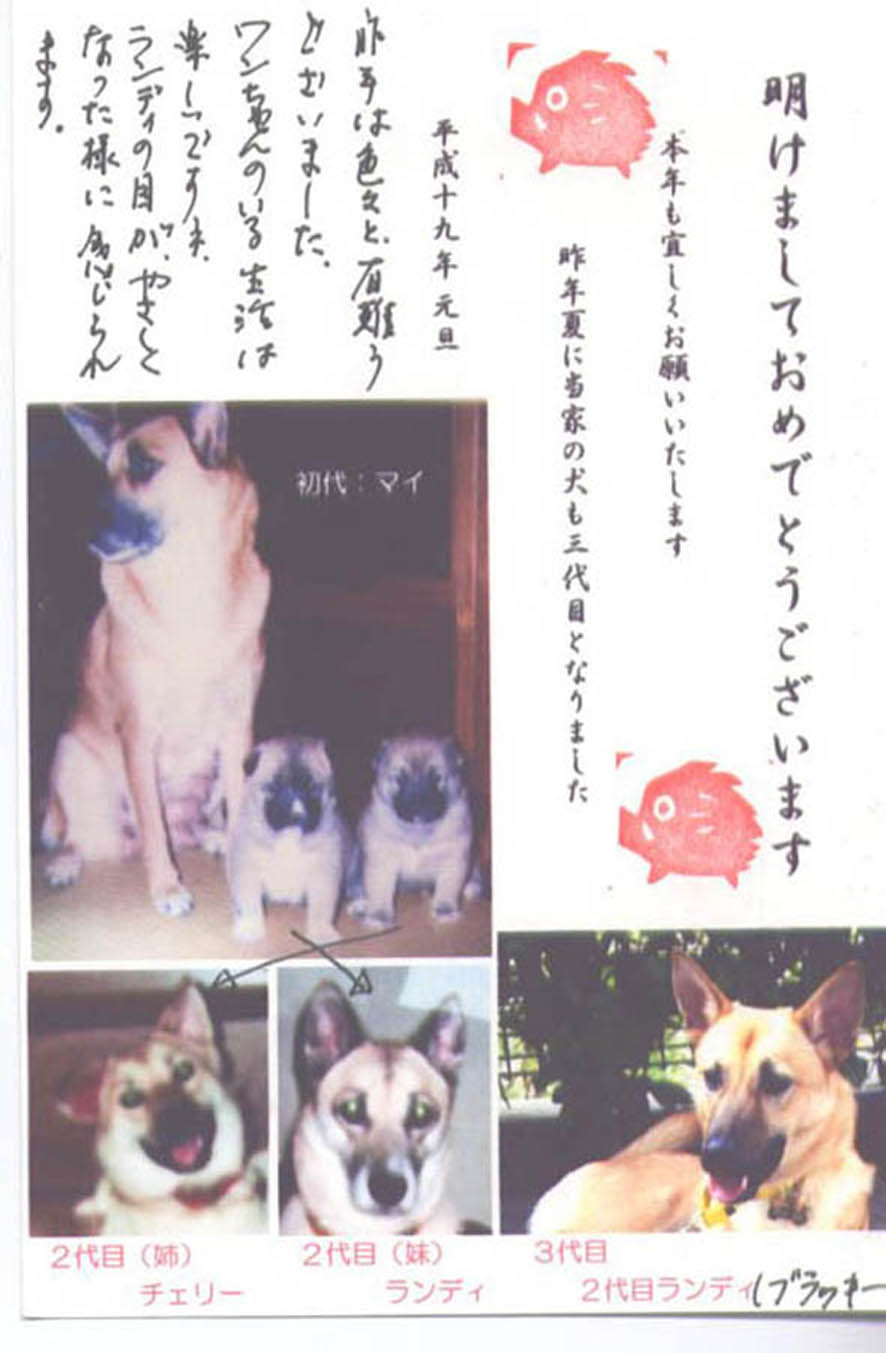 明けましておめでとうございます
本年も宜しくお願いいたします
昨年夏に当家の犬も三代目となりました
平成十九年 元旦
昨年は色々と、有難う
ございました。
ワンちゃんのいる生活は
楽しいですネ.
ランディの目が、やさしく
なった様に感じられ
ます。
初代：マイ
2代目（姉）
チェリー
2代目（妹）
ランディ
3代目
2代目ランディ(ブラッキー